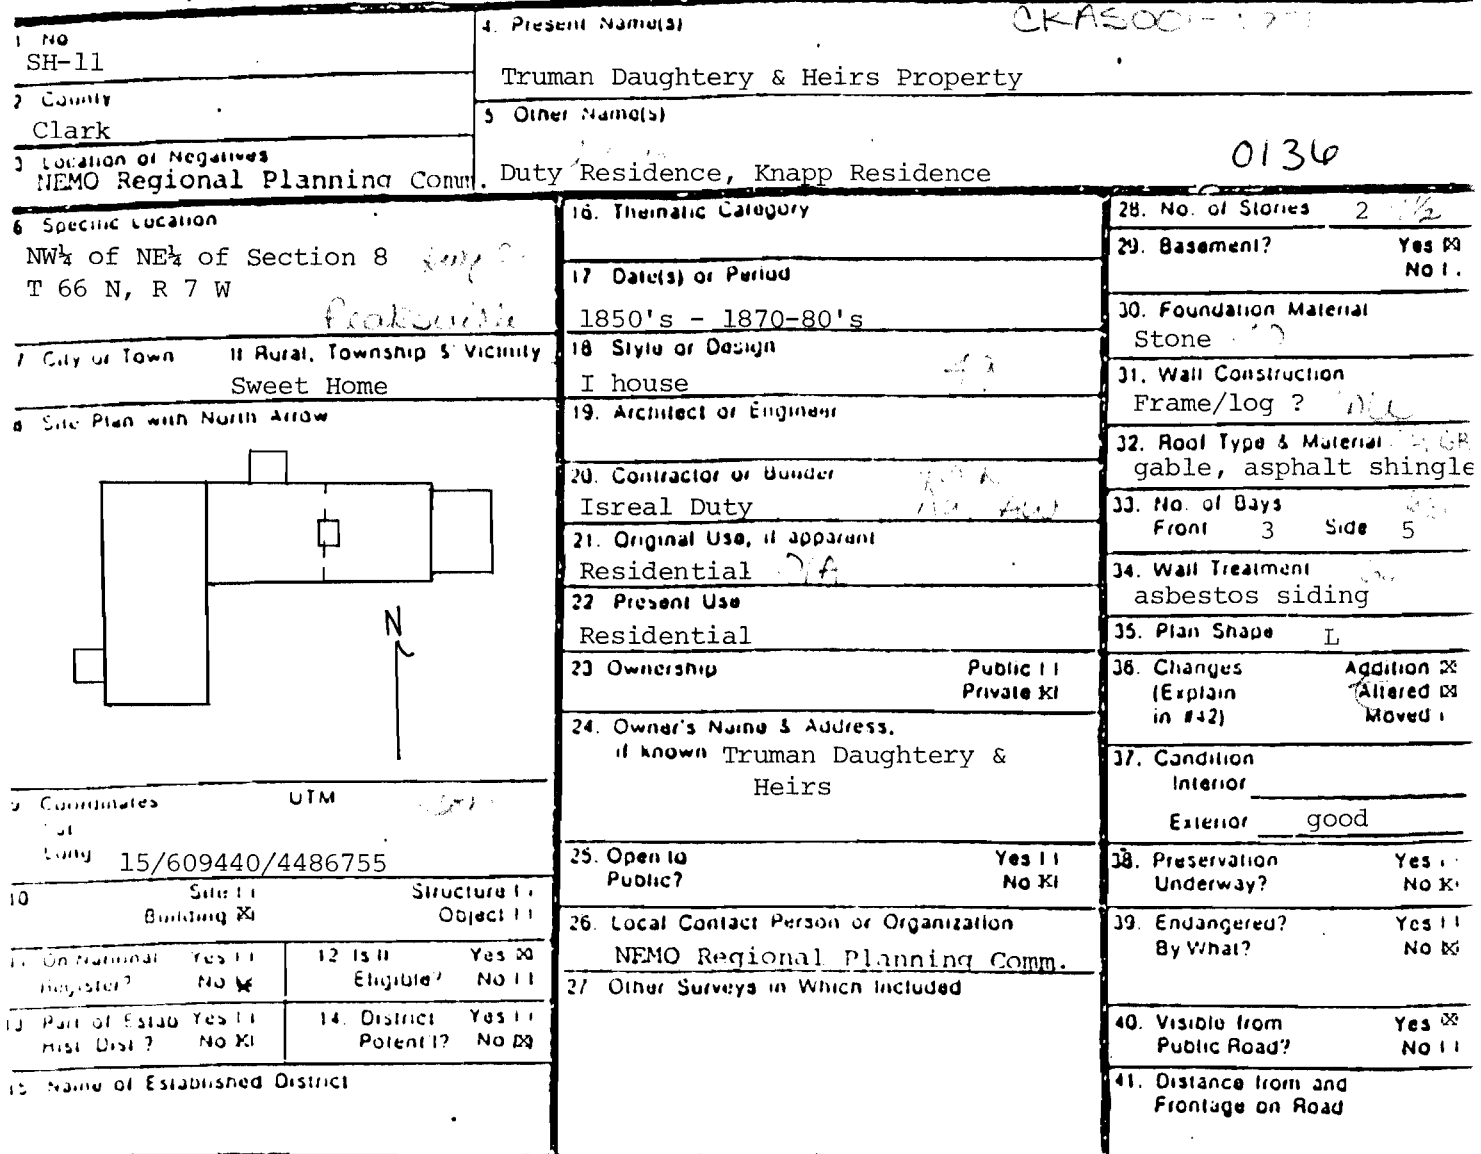 1 No
SH-11
2 County
Clark
3 Location of Negatives
NEMO Regional Planning Comm.
4. Present Name(s)
Truman Daughtery & Heirs Property
5 Other Name(s)
Duty Residence, Knapp Residence
0136
6 Specific Location
NW¼ of NE¼ of Section 8
T 66 N, R 7 W
7 City or Town If Rural, Township & Vicinity
Sweet Home
8 Site Plan with North Arrow
N
9 Coordinates UTM
Lat
Long 15/609440/4486755
10 Site Structure
Building X Object
11 On National Register? Yes No X
12 Is It Eligible? Yes X No
13 Part of Estab Hist Dist? Yes No X
14. District Potent'l? Yes No X
15 Name of Established District
16. Thematic Category
17 Date(s) or Period
1850's - 1870-80's
18 Style or Design
I house
19. Architect or Engineer
20. Contractor or Builder
Isreal Duty
21. Original Use, if apparent
Residential
22 Present Use
Residential
23 Ownership Public
Private X
24. Owner's Name & Address,
if known Truman Daughtery &
Heirs
25. Open to Yes
Public? No X
26. Local Contact Person or Organization
NEMO Regional Planning Comm.
27 Other Surveys in Which Included
28. No. of Stories 2 1/2
29. Basement? Yes X
No
30. Foundation Material
Stone
31. Wall Construction
Frame/log ?
32. Roof Type & Material
gable, asphalt shingle
33. No. of Bays
Front 3 Side 5
34. Wall Treatment
asbestos siding
35. Plan Shape L
36. Changes Addition X
(Explain Altered X
in #42) Moved
37. Condition
Interior
Exterior good
38. Preservation Yes
Underway? No X
39. Endangered? Yes
By What? No X
40. Visible from Yes X
Public Road? No
41. Distance from and
Frontage on Road